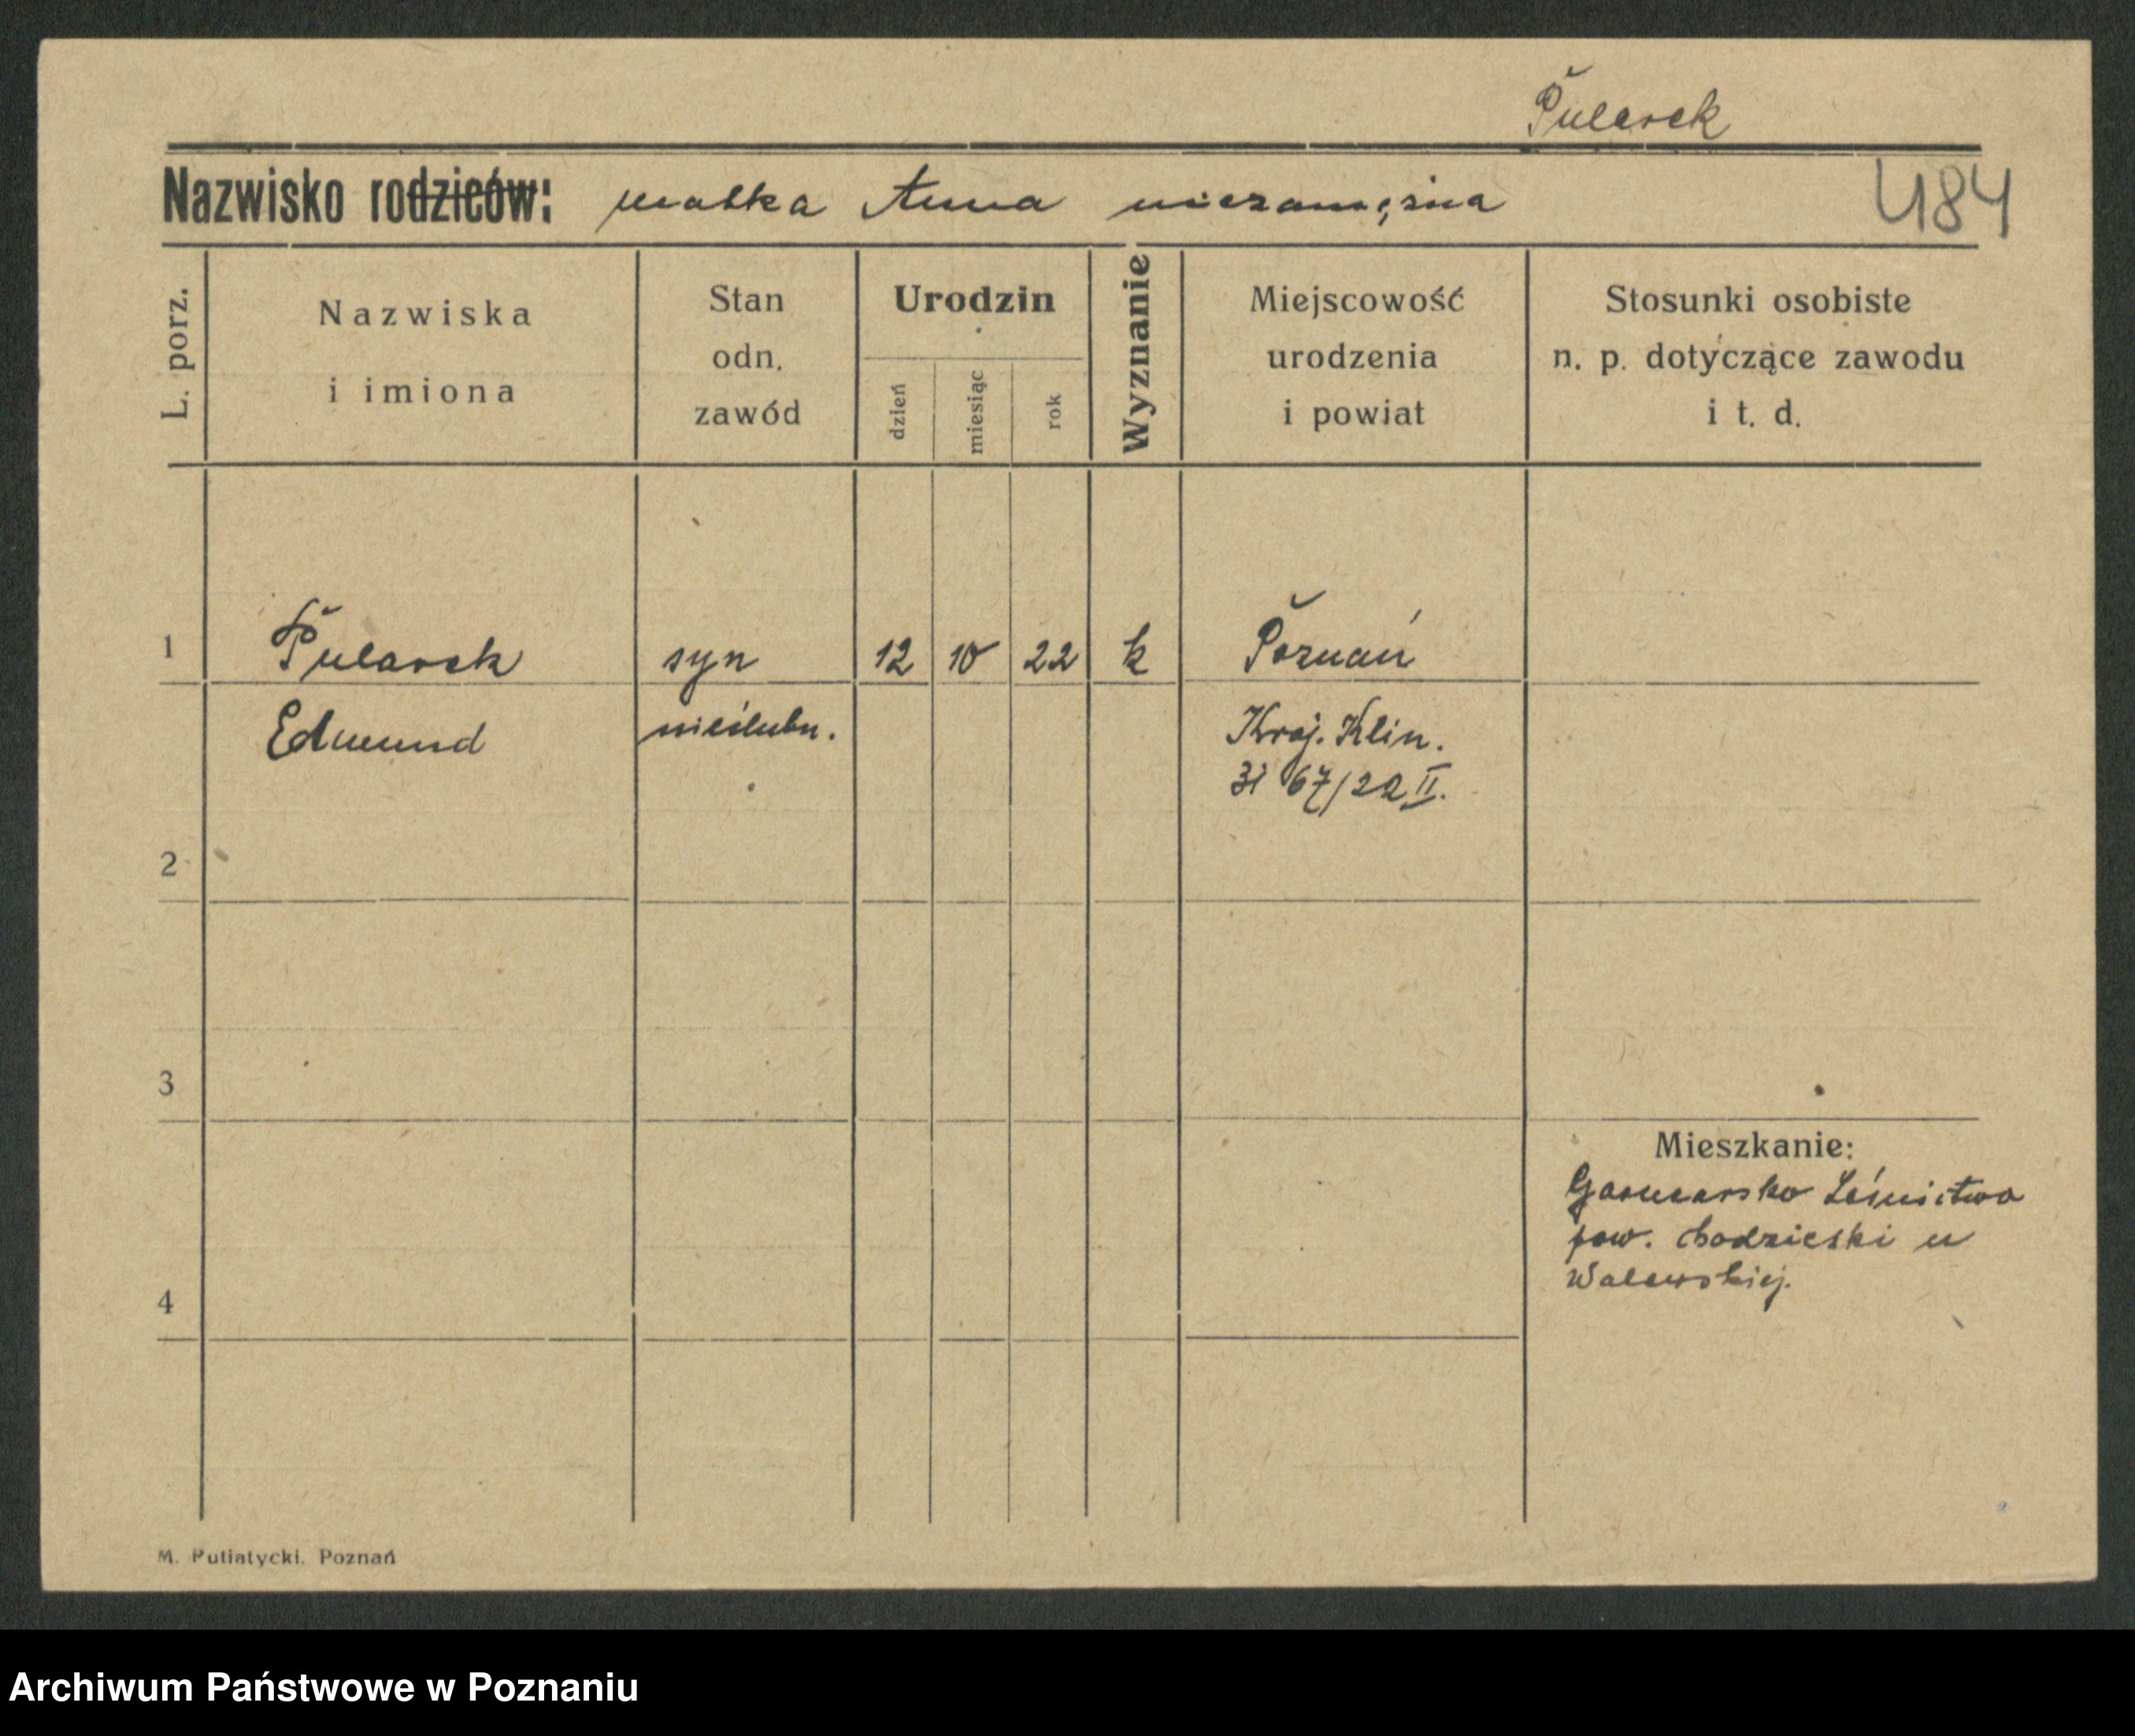 Pularek
Nazwisko rodziców: matka Anna niezamężna
484
L. porz.
Nazwiska
i imiona
Stan
odn.
zawód
Urodzin
dzień
miesiąc
rok
Wyznanie
Miejscowość
urodzenia
i powiat
Stosunki osobiste
n. p. dotyczące zawodu
i t. d.
1 Pularek syn 12 10 22 k Poznań
Edmund nieślubn. Kraj. Klin.
31 67/22 II.
2
3
Mieszkanie:
Garncarsko Leśnictwo
pow. chodzieski u
4 Walewskiej.
M. Putiatycki. Poznań
Archiwum Państwowe w Poznaniu